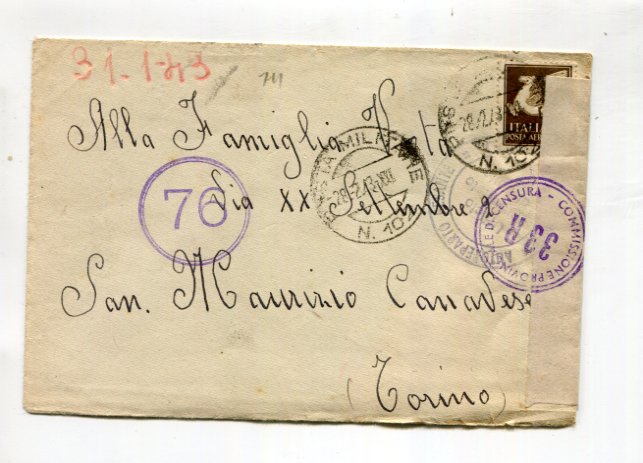 31-1-43
711
Alla Famiglia
Via XX Settembre 2
San. Maurizio Canavese
(Torino)
76
POSTA MILITARE
28.2.43.XXI
N. 10
POSTA
28.2.43
N. 10
ITALIA
POSTA AEREA
COMMISSIONE PROVINCIALE DI CENSURA
33R